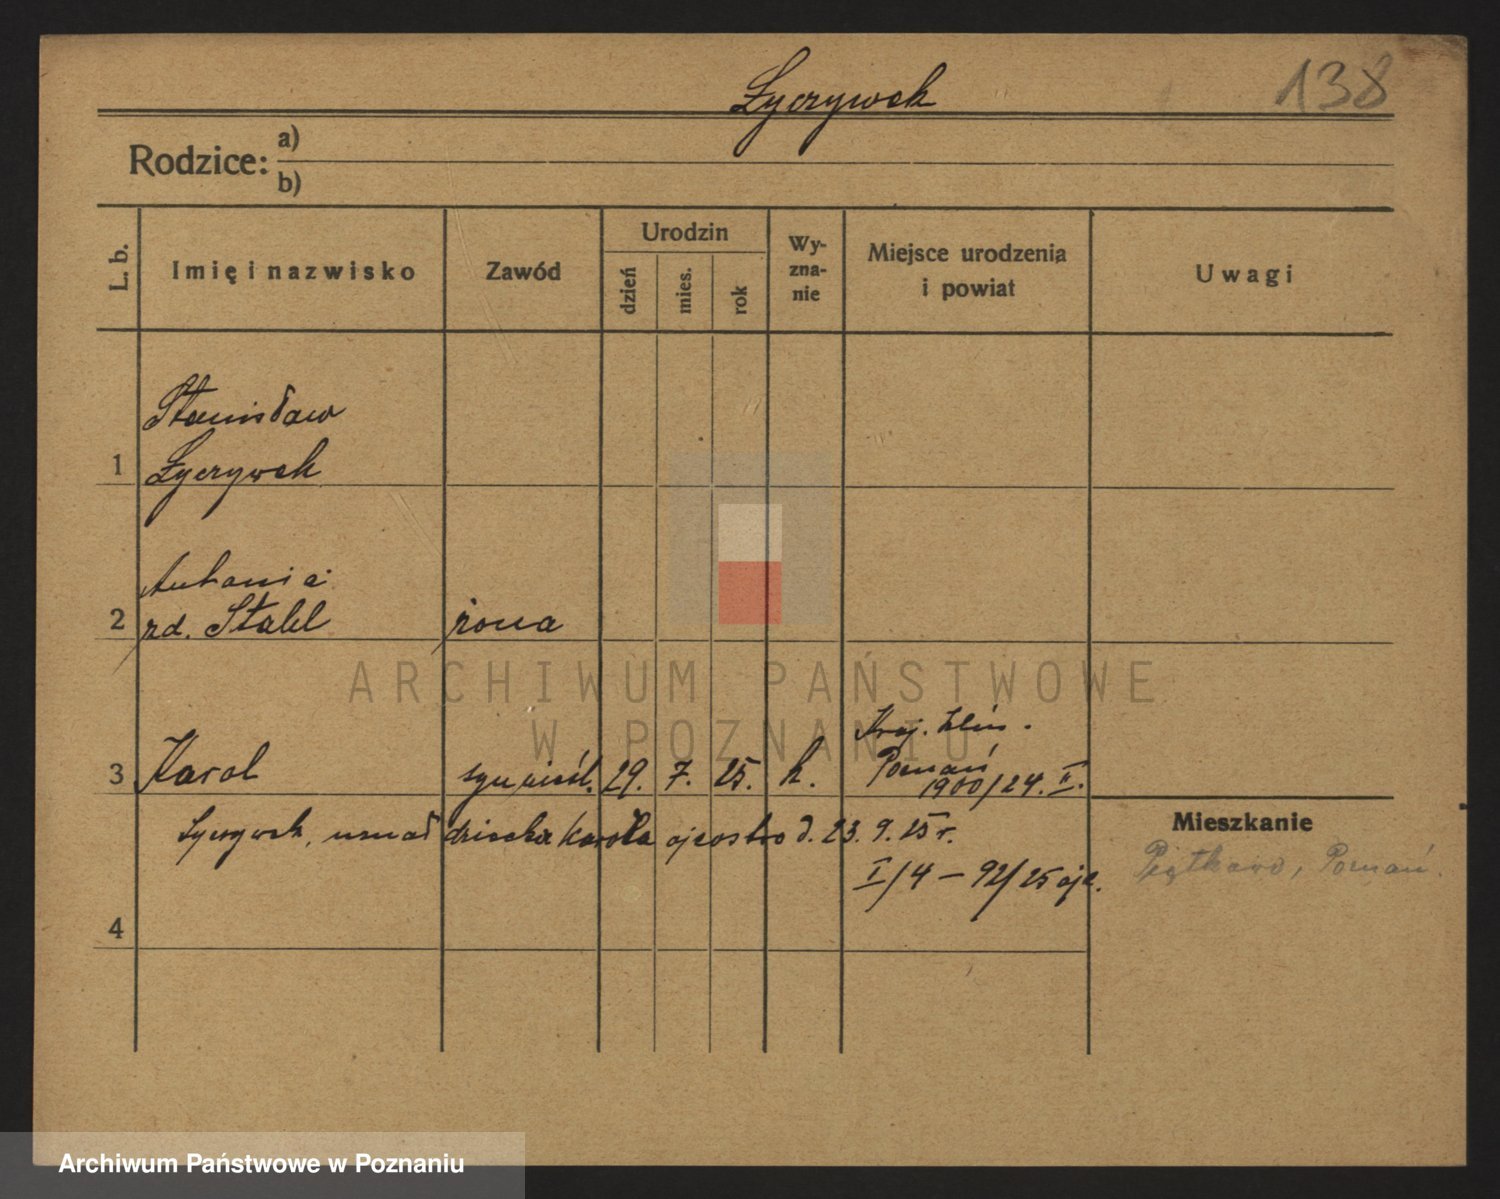 Łyczywek
138
Rodzice:
a)
b)
L. b.
Imię i nazwisko
Zawód
Urodzin
dzień
mies.
rok
Wy-
zna-
nie
Miejsce urodzenia
i powiat
Uwagi
Stanisław
1 Łyczywek
Antonia
2 zd. Stahl żona
Kraj. klin.
3 Karol syn 29. 7. 25. k. Poznań
1900/24. II.
Łyczywek, uznał dziecko Karola ojcostwo d. 23. 9. 25 r.
I/4 – 92/25
4
Mieszkanie
Piątkowo, Poznań.
ARCHIWUM PAŃSTWOWE
W POZNANIU
Archiwum Państwowe w Poznaniu